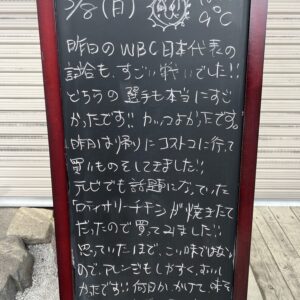 3/8(日)
9℃
昨日のWBC日本代表の
試合も、すごい戦いでした!!
どちらの選手も本当にすご
かったです!! カッコよかったです。
昨日は帰りにコストコに行って
買いものをしてきました!!
テレビでも話題になっていた
ロティサリーチキンが焼きたて
だったので買ってみました!!
思っていたほど、こい味ではない
ので、アレンジもしやすく、おいし
かったです!! 何日かかけて